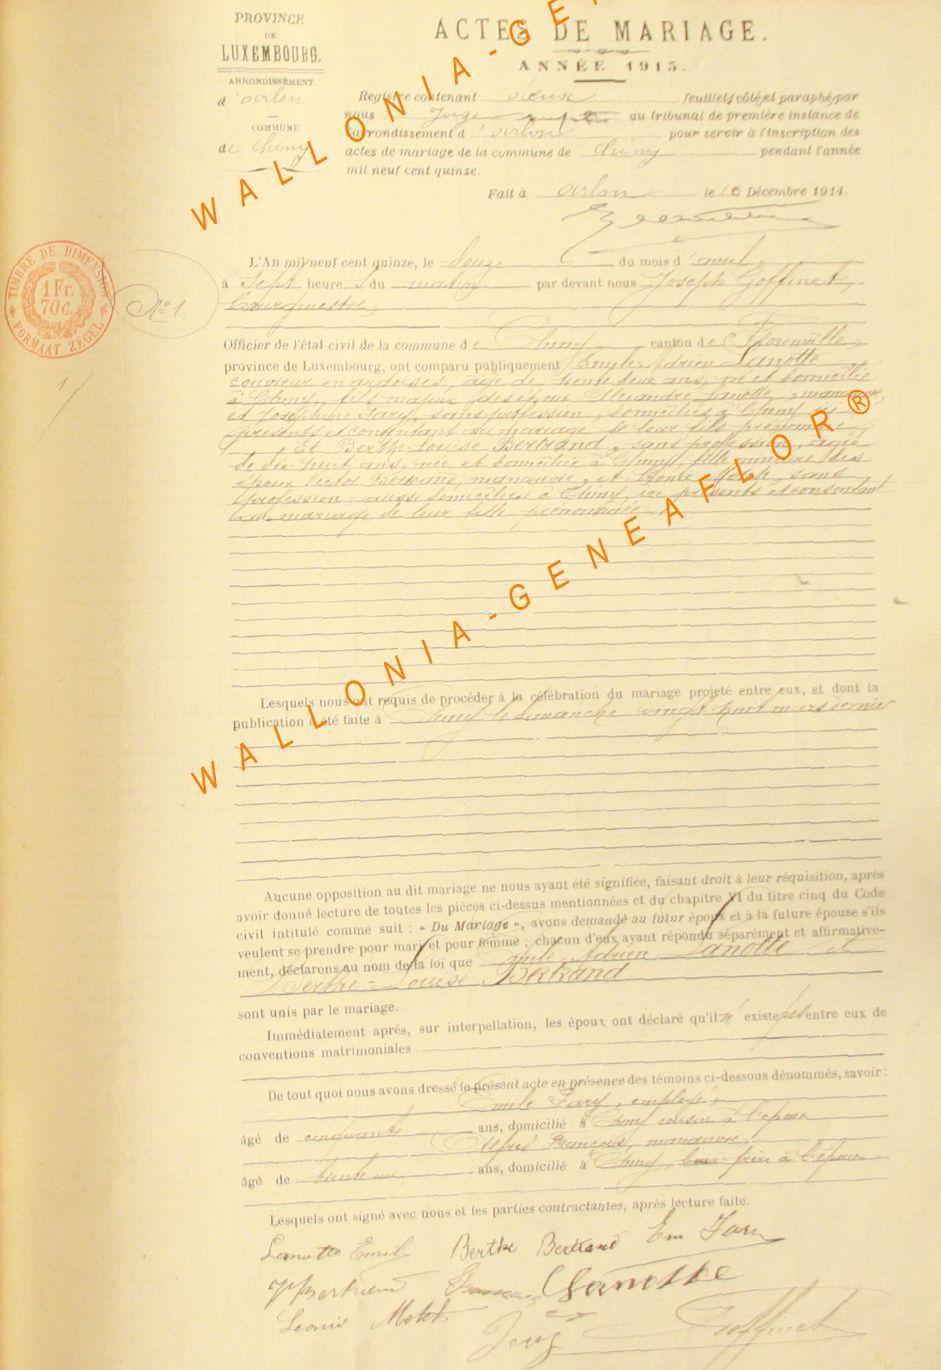 PROVINCE
DE
LUXEMBOURG.
ARRONDISSEMENT
d'Arlon
COMMUNE
de Chiny
ACTES DE MARIAGE.
ANNÉE 1915.
Registre contenant deux feuillets, côté et paraphé par
nous Juge du tribunal de première instance de
l'arrondissement d'Arlon pour servir à l'inscription des
actes de mariage de la commune de Chiny pendant l'année
mil neuf cent quinze.
Fait à Arlon le 10 Décembre 1914
TIMBRE DE DIMENSION
1 Fr.
70 c.
FORMAAT ZEGEL
No 1
L'An mil neuf cent quinze, le douze du mois d'avril,
à Sept heures du matin par devant nous Joseph Goffinet,
Bourgmestre,
Officier de l'état civil de la commune de Chiny canton de Florenville,
province de Luxembourg, ont comparu publiquement Emile-Adrien Lanotte,
couvreur en ardoises, âgé de trente deux ans, né et domicilié
à Chiny, fils majeur des époux Alexandre Lanotte, manœuvre,
et Joséphine Jary, sans profession, domiciliés à Chiny, ici
présents et consentant au mariage de leur fils prénommé
Et Berthe-Louise Bertrand, sans profession, âgée
de dix-huit ans, née et domiciliée à Chiny, fille mineure des
époux Victor Bertrand, manœuvre, et Léonie sans
profession, aussi domiciliés à Chiny, ici présents et consentant
au mariage de leur fille prénommée
Lesquels nous ont requis de procéder à la célébration du mariage projeté entre eux, et dont la
publication a été faite à Chiny le dimanche vingt-huit mars dernier
Aucune opposition au dit mariage ne nous ayant été signifiée, faisant droit à leur réquisition, après
avoir donné lecture de toutes les pièces ci-dessus mentionnées et du chapitre VI du titre cinq du Code
civil intitulé comme suit : « Du Mariage », avons demandé au futur époux et à la future épouse s'ils
veulent se prendre pour mari et pour femme ; chacun d'eux ayant répondu séparément et affirmative-
ment, déclarons au nom de la loi que Emile-Adrien Lanotte et
Berthe-Louise Bertrand
sont unis par le mariage.
Immédiatement après, sur interpellation, les époux ont déclaré qu'il n'existe pas entre eux de
conventions matrimoniales
De tout quoi nous avons dressé le présent acte en présence des témoins ci-dessous dénommés, savoir :
Emile Jary, employé,
âgé de cinquante ans, domicilié à Chiny cousin à l'époux
Alfred François, manœuvre,
âgé de ans, domicilié à Chiny, frère à l'épouse
Lesquels ont signé avec nous et les parties contractantes, après lecture faite.
Lanotte Emile Berthe Bertrand Em Jary
Bertrand Lanotte
Léonie Motet
Goffinet
WALLONIA-GENEAFLOR®
WALLONIA-GE